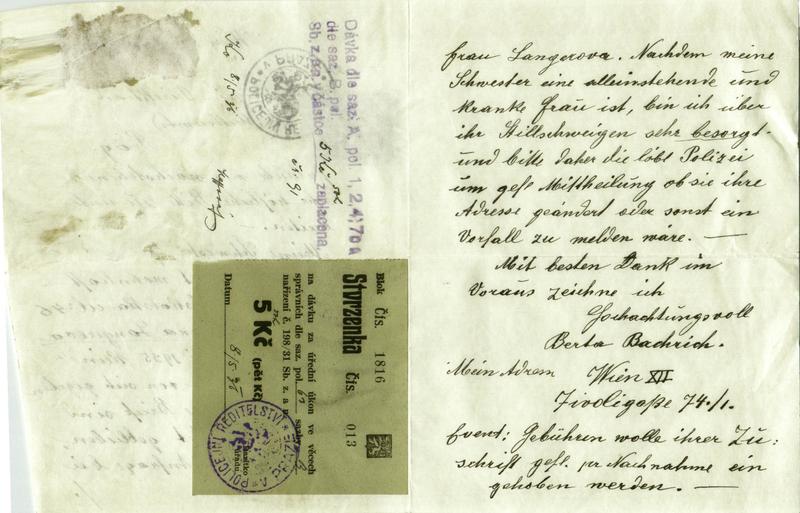 Dávka dle saz. A, pol. 1, 2, 4, 70 a
dle saz. B, pol.
Sb. z. a n. v částce 5 Kč zaplacena.
čís. 91
8/5 35
Blok Čís. 1816
Stvrzenka Čís. 013
na dávku za úřední úkon ve věcech
správních dle saz. pol.
nařízení č. 198/31 Sb. z. a n.
5 Kč (pět Kč)
Datum 8/5 35
POLICEJNÍ ŘEDITELSTVÍ V PRAZE
Frau Langerova. Nachdem meine
Schwester eine alleinstehende und
kranke Frau ist, bin ich über
ihr Stillschweigen sehr besorgt
und bitte daher die löbl Polizei
um gefl Mittheilung ob sie ihre
Adresse geändert oder sonst ein
Vorfall zu melden wäre. —
Mit besten Dank im
Voraus zeichne ich
Hochachtungsvoll
Berta Bachrich.
Meine Adress Wien XII
Tivoligaße 74./1.
Event; Gebühren wolle ihrer Zu:
schrift gefl. per Nachnahme ein
gehoben werden. —